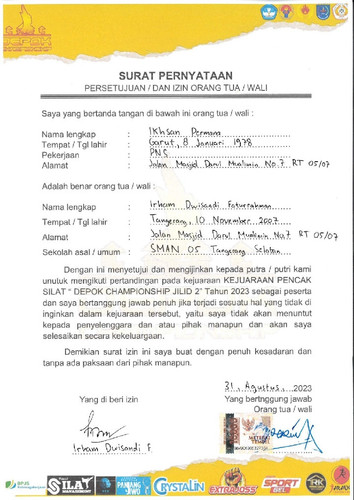 DEPOK
SURAT PERNYATAAN
PERSETUJUAN / DAN IZIN ORANG TUA / WALI
Saya yang bertanda tangan di bawah ini orang tua / wali :
Nama lengkap : Ikhsan Permana
Tempat / Tgl lahir : Garut, 8 Januari 1978
Pekerjaan : PNS
Alamat : Jalan Masjid Darul Muslimin No.7 RT 05/07
Adalah benar orang tua / wali :
Nama lengkap : Irham Dwisandi Faturrahman
Tempat / Tgl lahir : Tangerang, 10 November 2007
Alamat : Jalan Masjid Darul Muslimin No.7 RT 05/07
Sekolah asal / umum : SMAN 05 Tangerang Selatan
Dengan ini menyetujui dan mengijinkan kepada putra / putri kami
untuk mengikuti pertandingan pada kejuaraan KEJUARAAN PENCAK
SILAT " DEPOK CHAMPIONSHIP JILID 2" Tahun 2023 sebagai peserta
dan saya bertanggung jawab penuh jika terjadi sesuatu hal yang tidak di
inginkan dalam kejuaraan tersebut, yaitu saya tidak akan menuntut
kepada penyelenggara dan atau pihak manapun dan akan saya
selesaikan secara kekeluargaan.
Demikian surat izin ini saya buat dengan penuh kesadaran dan
tanpa ada paksaan dari pihak manapun.
31, Agustus, 2023
Yang di beri izin
Yang bertnggung jawab
Orang tua / wali
METERAI
TEMPEL
Irham Dwisandi F
BPJS
SILAT
MANAGEMENT
PANJANG
JIWO
CRYSTALIN
EXTRAJOSS
SPORT
RK